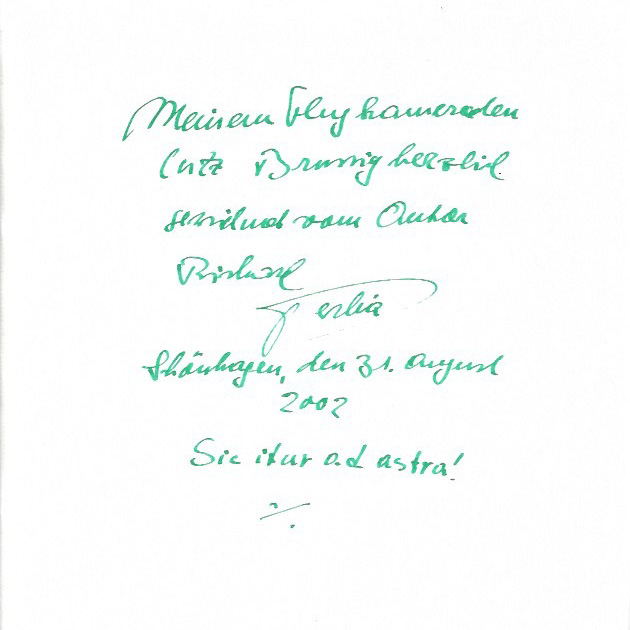 Meinem Flugkameraden
Lutz Brussig herzlich
gewidmet vom Autor
Richard
Perlia
Schönhagen, den 31. August
2002
Sic itur ad astra!